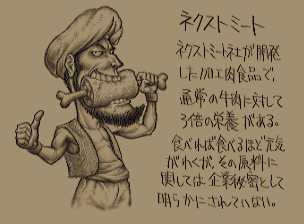 ネクストミート
ネクストミート社が開発
した加工肉食品で
通常の牛肉に対して
3倍の栄養がある。
食べれば食べるほど元気
がわくが、その原料に
関しては企業秘密として
明らかにされていない。